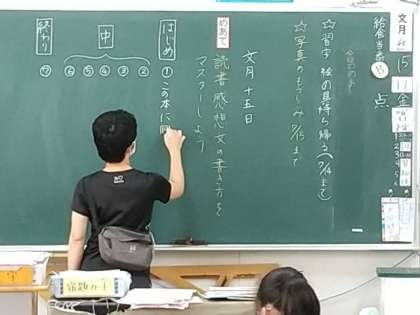 文月
15
金
11
給食当番
点
☆習字 絵の具持ち帰る(7/14まで)
☆写真のもうしこみ 7/15まで
文月 十五日
めあて
読書感想文の書き方を
マスターしよう
はじめ
①この本に
中
②
③
④
⑤
⑥
終わり
⑦
宿題